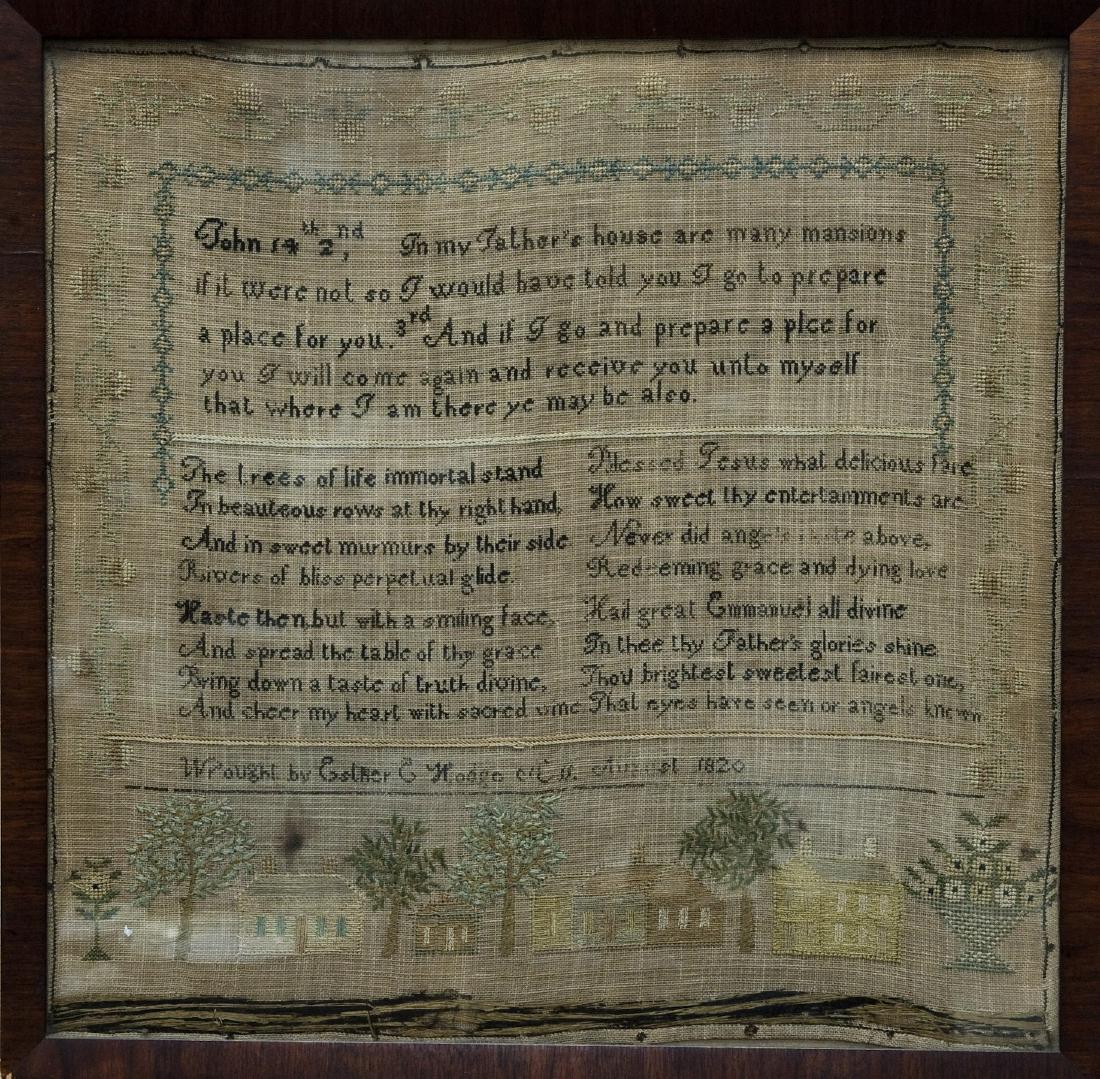 John 14th 2nd, In my Father's house are many mansions
if it were not so I would have told you I go to prepare
a place for you. 3rd And if I go and prepare a plce for
you I will come again and receive you unto myself
that where I am there ye may be also.
The trees of life immortal stand
In beauteous rows at thy right hand,
And in sweet murmurs by their side
Rivers of bliss perpetual glide.
Haste then, but with a smiling face,
And spread the table of thy grace
Bring down a taste of truth divine,
And cheer my heart with sacred wine
Blessed Jesus what delicious fare
How sweet thy entertainments are
Never did angels above,
Redeeming grace and dying love
Hail great Emmanuel all divine
In thee thy Father's glories shine
Thou brightest sweetest fairest one,
That eyes have seen or angels known
Wrought by Esther C Hodge August 1820